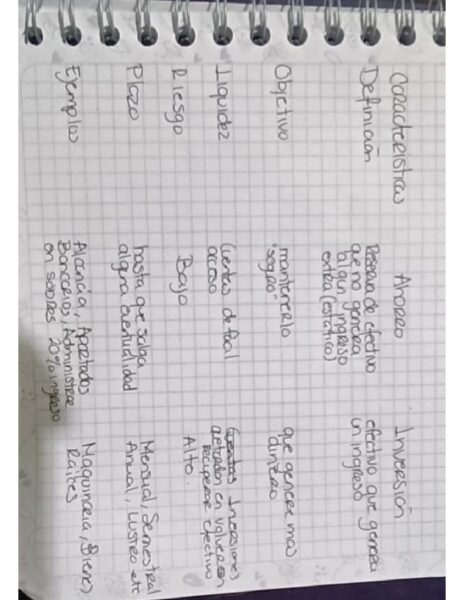 Caracteristicas Ahorro Inversión
Definición Reserva de efectivo efectivo que genera
que no genera un ingreso
algun ingreso
extra (estatico)
Objetivo mantenerlo que genere mas
"seguro" dinero
Liquidez Cuentas de facil Inversiones
acceso que tarden en volverse
recuperar efectivo
Riesgo Bajo Alto.
Plazo hasta que salga Mensual, Semestral
alguna eventualidad Anual, Lustro etc
Ejemplos Alcancía, Apartados Maquinaria, Bienes
Bancarios, Administrar Raíces
en sobres 20% ingreso